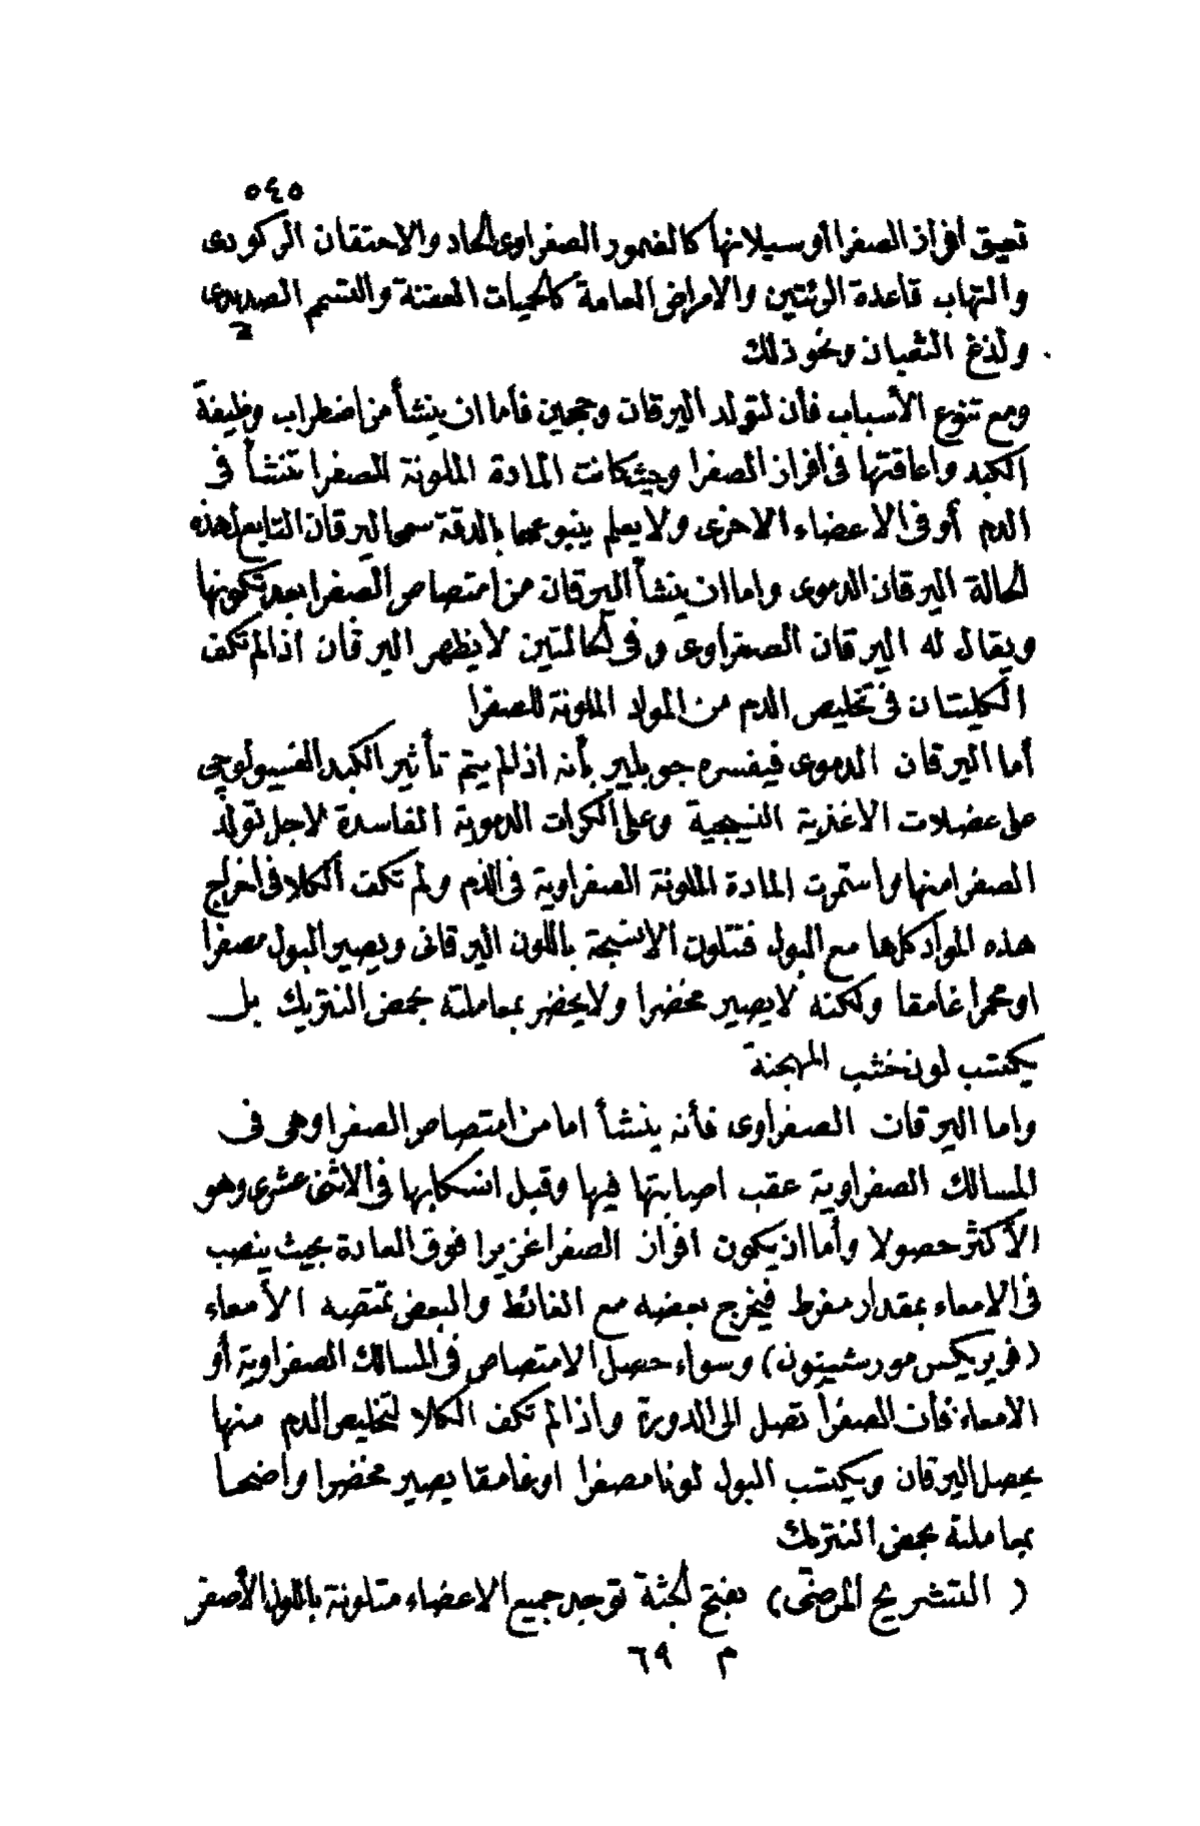 ٥٤٥
تعيق افراز الصفرا أو سيلانها كالضمور الصفراوى الحاد والاحتقان الركودى
والتهاب قاعدة الرئتين والامراض العامة كالحميات العفنة والتسمم الصديدى
ولذغ الثعبان ونحو ذلك
ومع تنوع الأسباب فأن لتولد اليرقان وجهين فأما ان ينشأ من اضطراب وظيفة
الكبد واعاقتها فى افراز الصفرا وحيث كانت المادة الملونة للصفرا تنشأ فى
الدم أو فى الاعضاء الاخرى ولا يعلم ينبوعها بالدقة سمى اليرقان التابع لهذه
الحالة اليرقان الدموى واما ان ينشأ اليرقان من امتصاص الصفرا بعد تكونها
ويقال له اليرقان الصفراوى وفى الحالتين لا يظهر اليرقان اذا لم تكف
الكليتان فى تخليص الدم من المواد الملونة للصفرا
أما اليرقان الدموى فيفسره جوبلير بأنه اذا لم يتم تأثير الكبد الفسيولوجى
على عضلات الاغذية النسيجية وعلى الكرات الدموية الفاسدة لاجل تولد
الصفرا منها واستمرت المادة الملونة الصفراوية فى الدم ولم تكف الكلا فى اخراج
هذه المواد كلها مع البول فتتلون الانسجة باللون اليرقانى ويصير البول مصفرا
او محمرا غامقا ولكنه لا يصير مخضرا ولا يخضر بمعاملته بحمض النتريك بل
يكتسب لون خشب المهجنة
واما اليرقان الصفراوى فأنه ينشأ اما من امتصاص الصفرا وهى فى
المسالك الصفراوية عقب اصابتها فيها وقبل انسكابها فى الاثنى عشرى وهو
الأكثر حصولا وأما ان يكون افراز الصفرا غزيرا فوق العادة بحيث ينصب
فى الامعاء بمقدار مفرط فيخرج بعضه مع الغائط والبعض تمتصه الأمعاء
(فريريكس مورشيزون) وسواء حصل الامتصاص فى المسالك الصفراوية أو
الامعاء فأن الصفرأ تصل الى الدورة واذا لم تكف الكلا لتخليص الدم منها
يحصل اليرقان ويكتسب البول لونا مصفرا او غامقا يصير مخضرا واضحا
بمعاملته بحمض النتريك
( التشريح المرضى) بفتح الجثة توجد جميع الاعضاء متلونة باللون الأصفر
م ٦٩